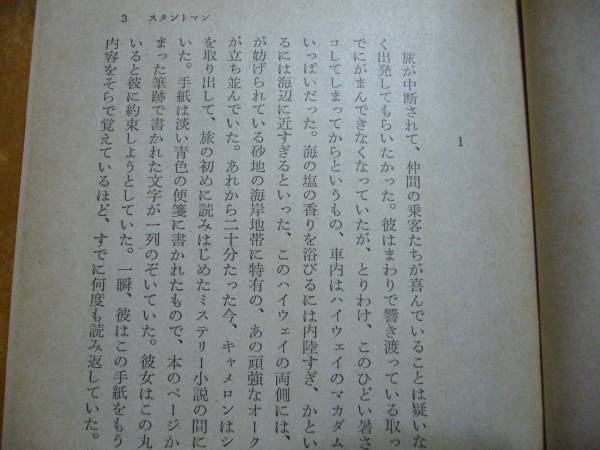 3 スタントマン
1
旅が中断されて、仲間の乗客たちが喜んでいることは疑いな
く出発してもらいたかった。彼はまわりで響き渡っている取っ
でにがまんできなくなっていたが、とりわけ、このひどい暑さ
コしてしまってからというもの、車内はハイウェイのマカダム
いっぱいだった。海の塩の香りを浴びるには内陸すぎ、かとい
るには海辺に近すぎるといった、このハイウェイの両側には、
が妨げられている砂地の海岸地帯に特有の、あの頑強なオーク
が立ち並んでいた。あれから二十分たった今、キャメロンはシ
を取り出して、旅の初めに読みはじめたミステリー小説の間に
いた。手紙は淡い青色の便箋に書かれたもので、本のページか
まった筆跡で書かれた文字が一列のぞいていた。彼女はこの丸
いると彼に約束しようとしていた。一瞬、彼はこの手紙をもう
内容をそらで覚えているほど、すでに何度も読み返していた。